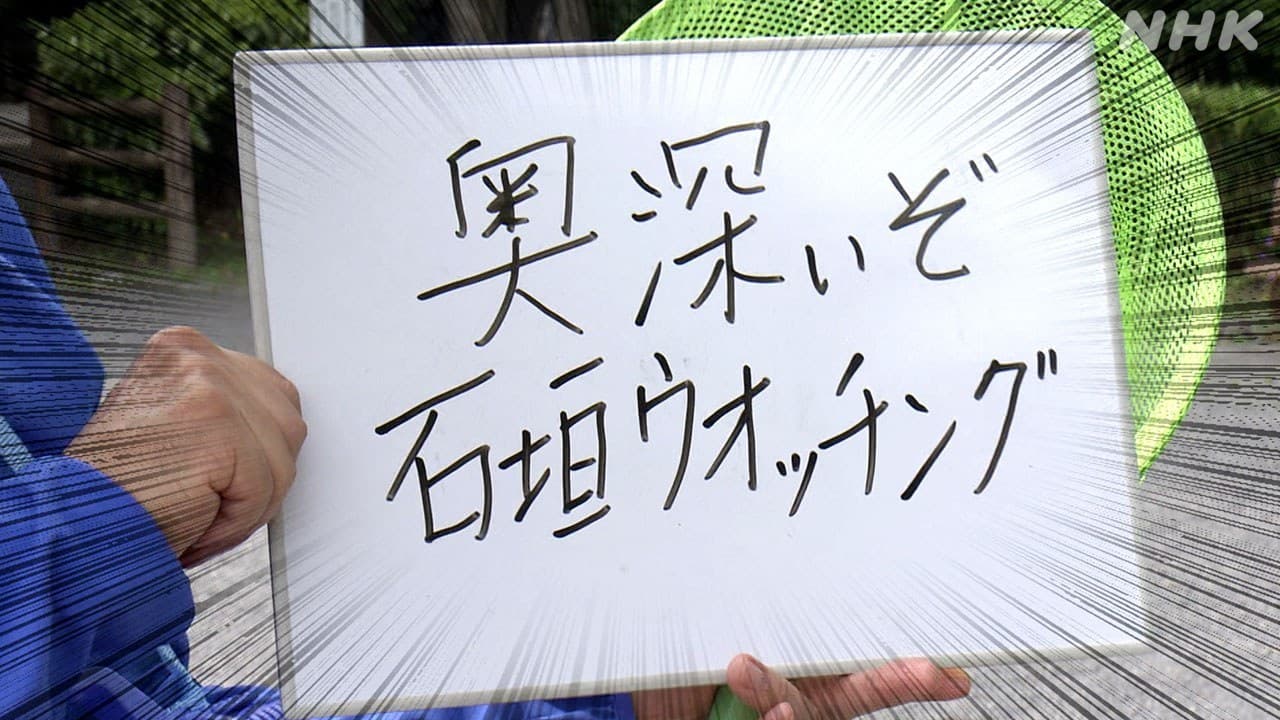 NHK
奥深いぞ
石垣ウオッチング